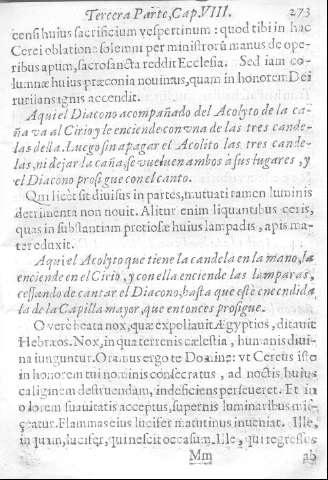 Tercera Parte, Cap. VIII. 273
censi huius sacrificium vespertinum: quod tibi in hac
Cerei oblatione solemni per ministrorū manus de ope-
ribus apum, sacrosancta reddit Ecclesia. Sed iam co-
lumnæ huius præconia nouimus, quam in honorem Dei
rutilans ignis accendit.
Aqui el Diacono acompañado del Acolyto de la ca-
ña va al Cirio y le enciende con vna de las tres cande-
las della. Luego sin apagar el Acolito las tres cande-
las, ni dejar la caña, se vueluen ambos a sus lugares, y
el Diacono prosigue con el canto.
Qui licet sit diuisus in partes, mutuati tamen luminis
detrimenta non nouit. Alitur enim liquantibus ceris,
quas in substantiam pretiosæ huius lampadis, apis ma-
ter eduxit.
Aqui el Acolyto que tiene la candela en la mano, la
enciende en el Cirio, y con ella enciende las lamparas,
cessando de cantar el Diacono, hasta que estè encendida
la de la Capilla mayor, que entonces prosigue.
O vere beata nox, quæ expoliauit Ægyptios, ditauit
Hebræos. Nox, in qua terrenis cælestia, humanis diui-
na iunguntur. Oramus ergo te Domine: vt Cereus iste
in honorem tui nominis consecratus, ad noctis huius
caliginem destruendam, indeficiens perseueret. Et in
odorem suauitatis acceptus, supernis luminaribus mis-
ceatur. Flammas eius lucifer matutinus inueniat. Ille,
inquam, lucifer, qui nescit occasum. Ille, qui regressus
Mm ab